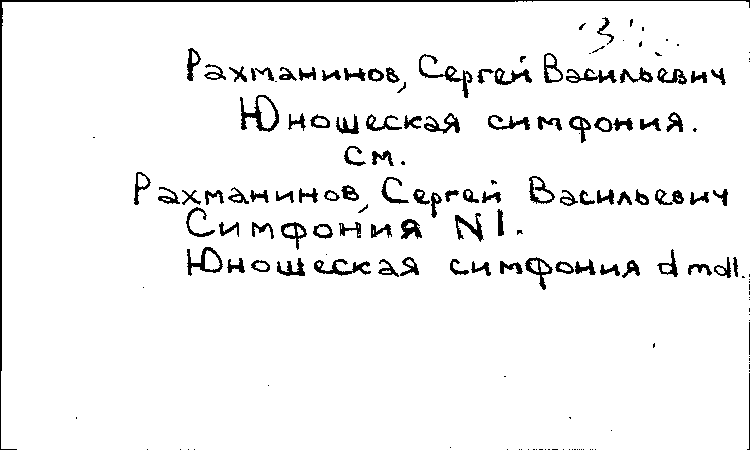 Рахманинов, Сергей Васильевич
Юношеская симфония.
см.
Рахманинов, Сергей Васильевич
Симфония N1.
Юношеская симфония d moll.